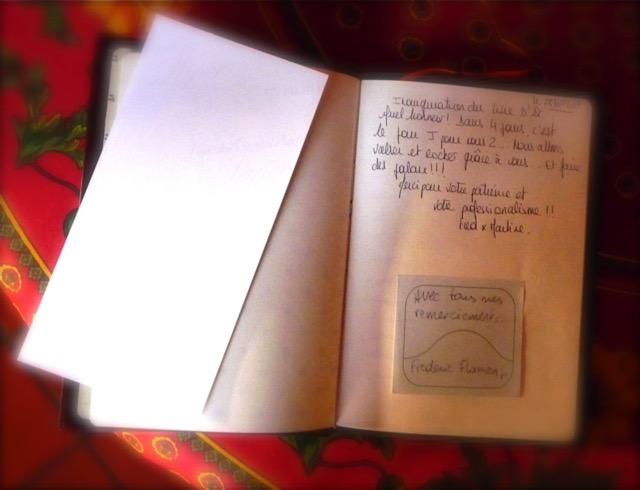 Inauguration du livre d'Or
Quel honneur! Dans 4 jours, c'est
le jour J pour nous 2... Nous allons
valser et rocker grâce à vous... Et faire
des jaloux!!!
Merci pour votre patience et
votre professionalisme!!
Fred & Martine.
Avec tous mes
remerciements.
Frederic Flamen